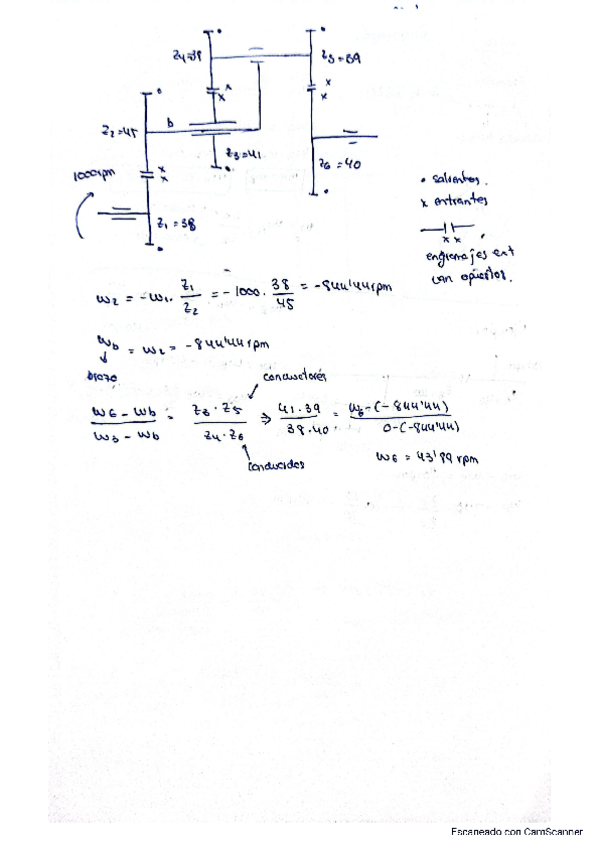 Z4=39
Z5=39
Z2=45
b
Z3=41
Z6=40
1000rpm
Z1=38
• salientes.
x entrantes
engranajes ext
van opuestos.
ω2 = -ω1 · Z1/Z2 = -1000 · 38/45 = -844'44rpm
ωb = ω2 = -844'44rpm
brazo
conductores
(ω6 - ωb)/(ω3 - ωb) = (Z3 · Z5)/(Z4 · Z6) ⇒ (41.39)/(38.40) = (ω6-(-844'44))/(0-(-844'44))
conducidos
ω6 = 43'99 rpm
Escaneado con CamScanner